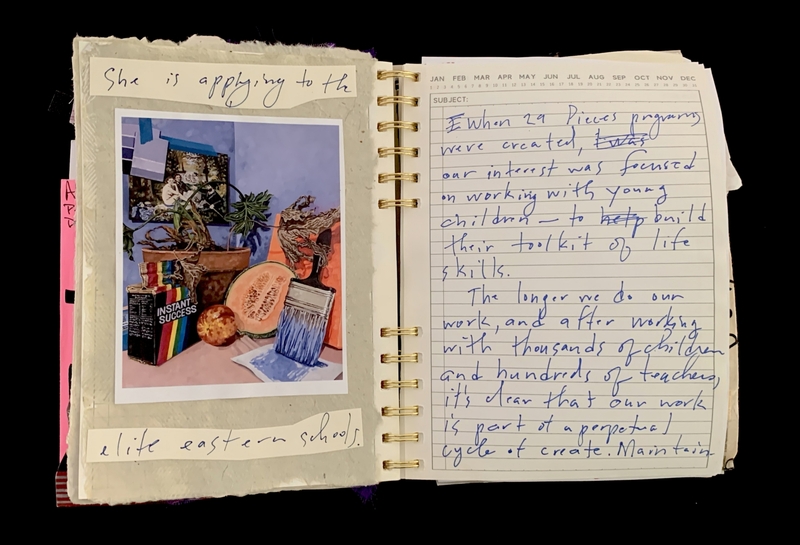 She is applying to th
INSTANT
SUCCESS
elite eastern schools.
A
P
D
JAN FEB MAR APR MAY JUN JUL AUG SEP OCT NOV DEC
SUBJECT:
I When 29 Pieces programs
were created, I was
our interest was focused
on working with young
children — to help build
their toolkit of life
skills.
The longer we do our
work, and after working
with thousands of children
and hundreds of teachers,
it's clear that our work
is part of a perpetual
cycle of create. Maintain